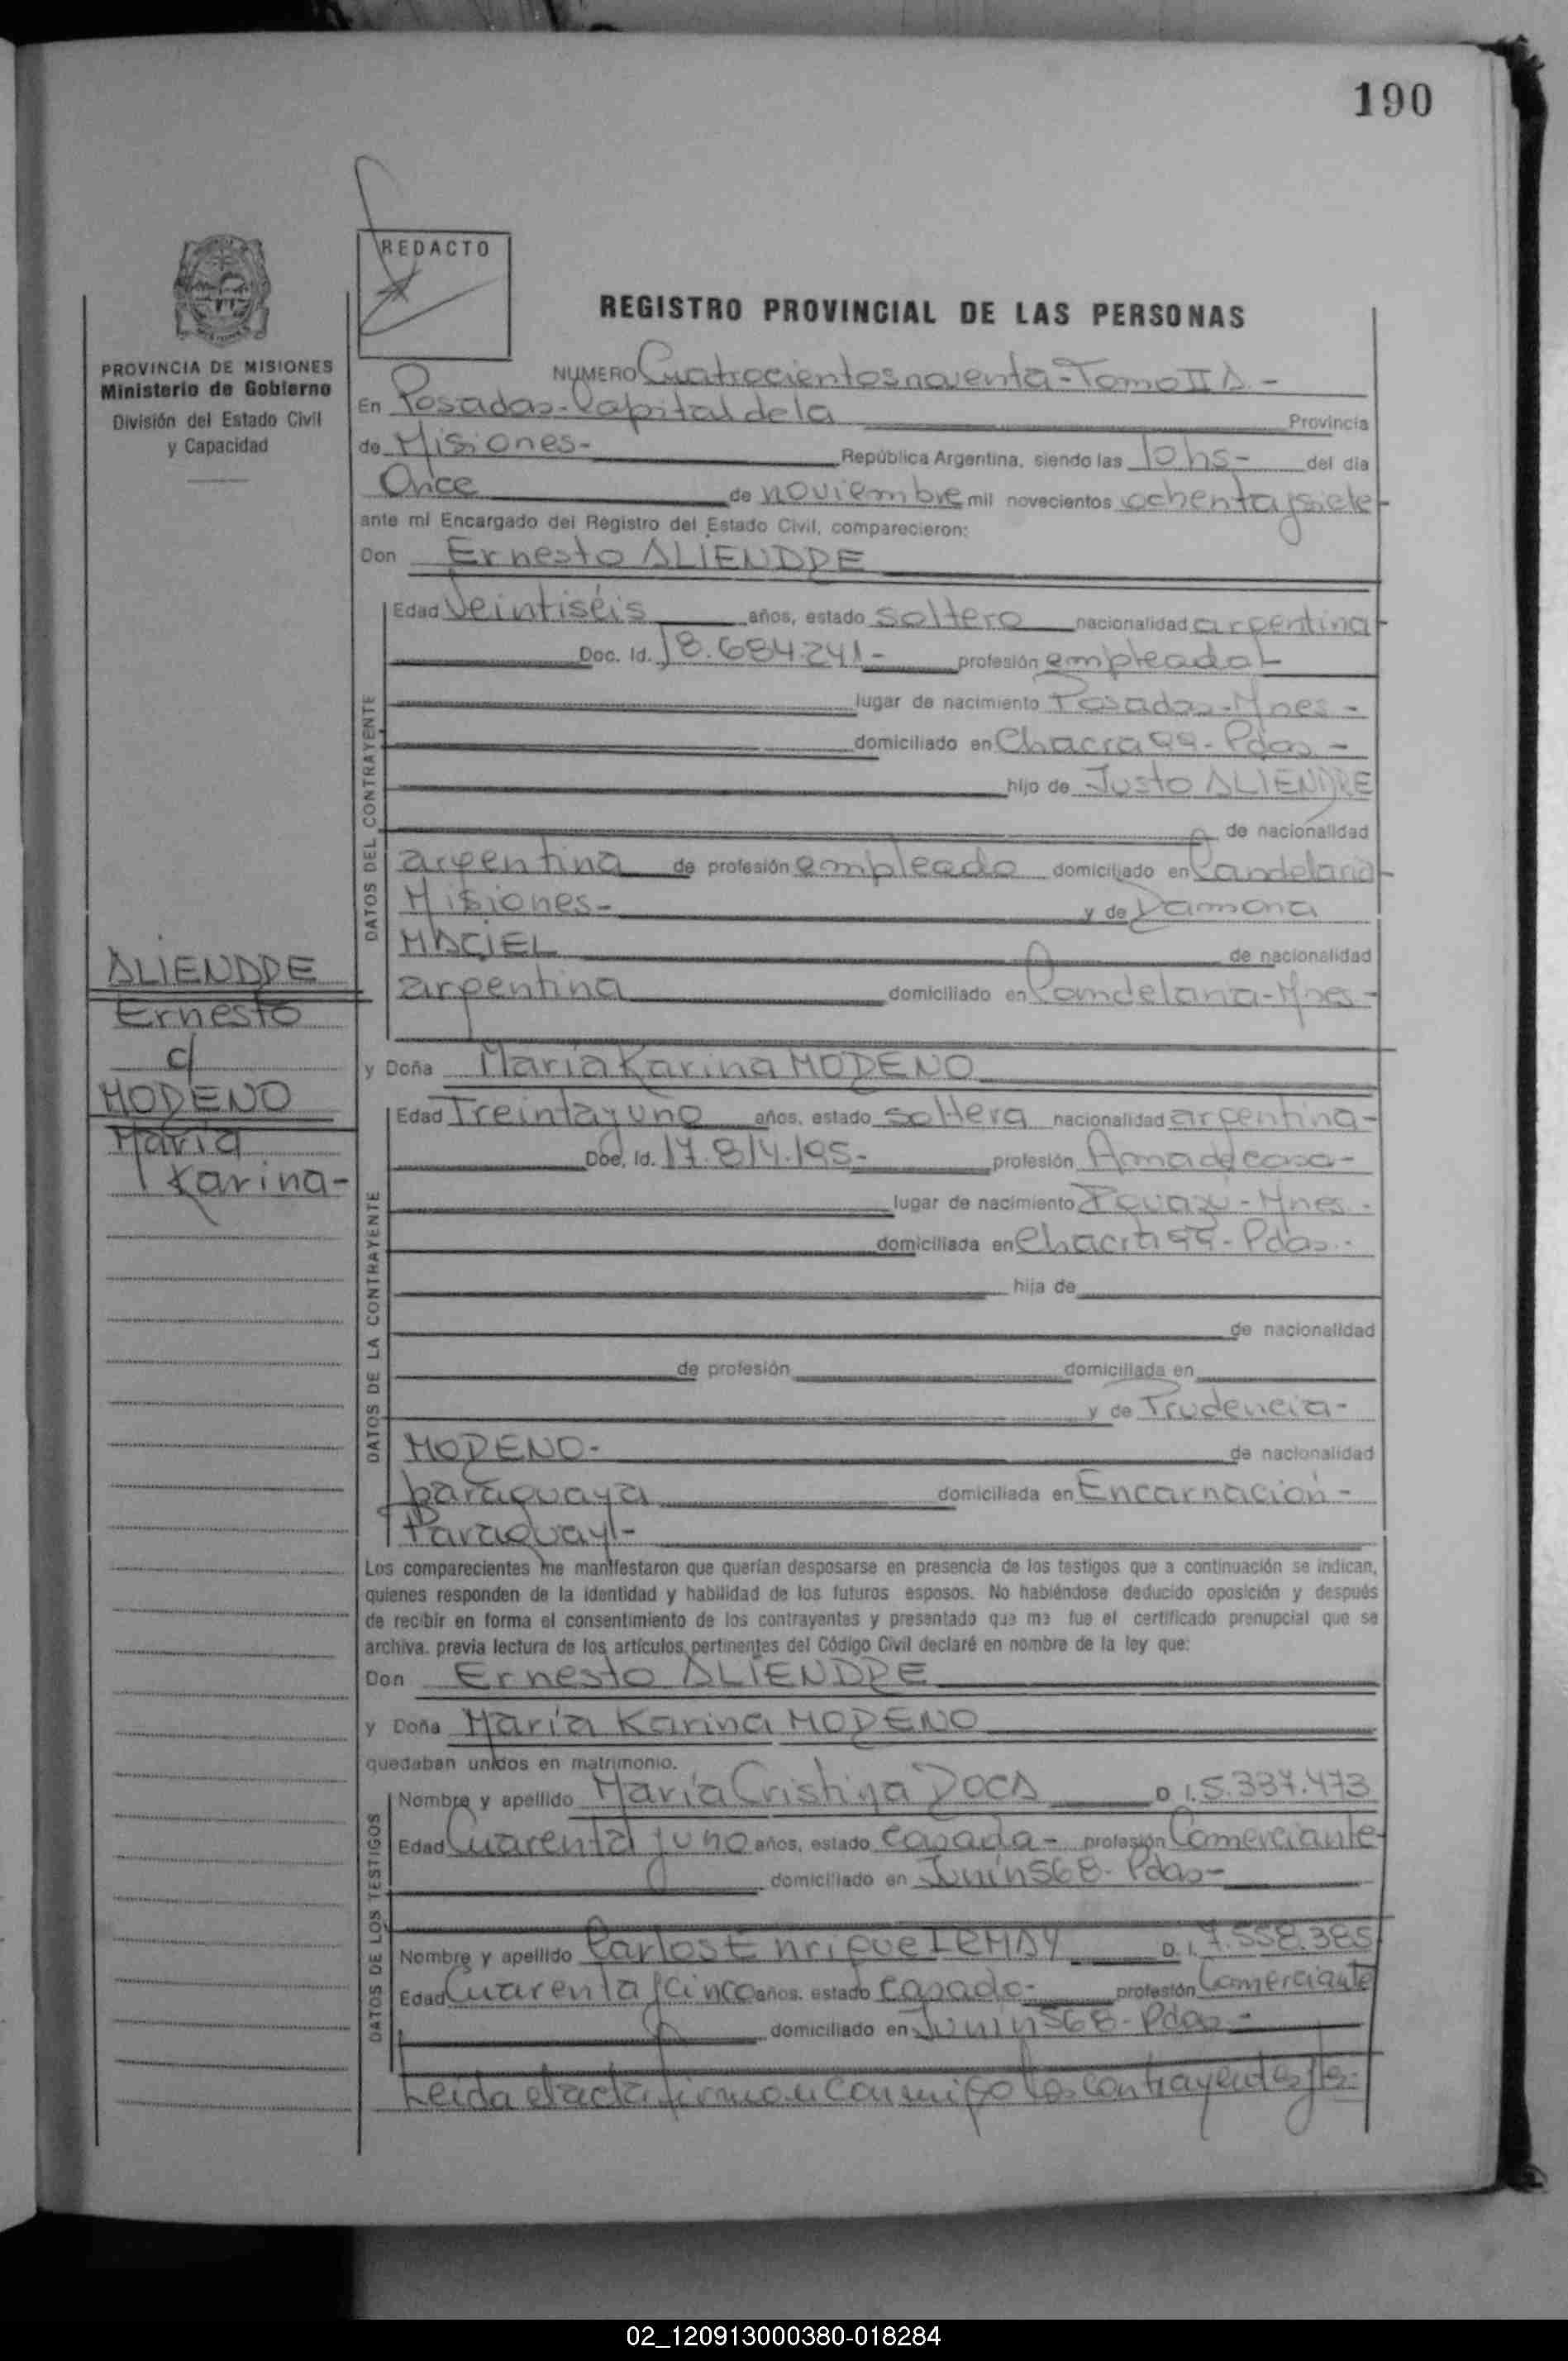 190
REDACTO
REGISTRO PROVINCIAL DE LAS PERSONAS
PROVINCIA DE MISIONES
Ministerio de Gobierno
División del Estado Civil
y Capacidad
NUMERO Cuatrocientos noventa - Tomo II A -
En Posadas - Capital de la Provincia
de Misiones - República Argentina, siendo las 10 hs - del día
Once de noviembre mil novecientos ochenta y siete -
ante mi Encargado del Registro del Estado Civil, comparecieron:
Don Ernesto ALIENDRE
DATOS DEL CONTRAYENTE
Edad Veintiséis años, estado soltero nacionalidad argentina -
Doc. Id. 18.684.241 - profesión empleado -
lugar de nacimiento Posadas - Mnes -
domiciliado en Chacra 99 - Pdas -
hijo de Justo ALIENDRE
de nacionalidad
argentina de profesión empleado domiciliado en Candelaria -
Misiones - y de Ramona
MACIEL de nacionalidad
argentina domiciliado en Candelaria - Mnes -
y Doña María Karina MORENO
ALIENDRE
Ernesto
c/
MORENO
María
Karina -
DATOS DE LA CONTRAYENTE
Edad Treinta y uno años, estado soltera nacionalidad argentina -
Doc. Id. 17.814.195 - profesión Ama de casa -
lugar de nacimiento Iguazú - Mnes -
domiciliada en Chacra 99 - Pdas. -
hija de
de nacionalidad
de profesión domiciliada en
y de Prudencia -
MORENO - de nacionalidad
paraguaya domiciliada en Encarnación -
Paraguay -
Los comparecientes me manifestaron que querían desposarse en presencia de los testigos que a continuación se indican,
quienes responden de la identidad y habilidad de los futuros esposos. No habiéndose deducido oposición y después
de recibir en forma el consentimiento de los contrayentes y presentado que me fue el certificado prenupcial que se
archiva. previa lectura de los artículos pertinentes del Código Civil declaré en nombre de la ley que:
Don Ernesto ALIENDRE
y Doña María Karina MORENO
quedaban unidos en matrimonio.
DATOS DE LOS TESTIGOS
Nombre y apellido María Cristina ROCA D.I. 5.337.473
Edad Cuarenta y uno años, estado casada - profesión Comerciante -
domiciliado en Junín 568 - Pdas -
Nombre y apellido Carlos Enrique IRMAY D.I. 7.558.385
Edad Cuarenta y cinco años. estado casado - profesión Comerciante
domiciliado en Junín 568 - Pdas -
Leída el acta firman conmigo los contrayentes y ts -
02_120913000380-018284